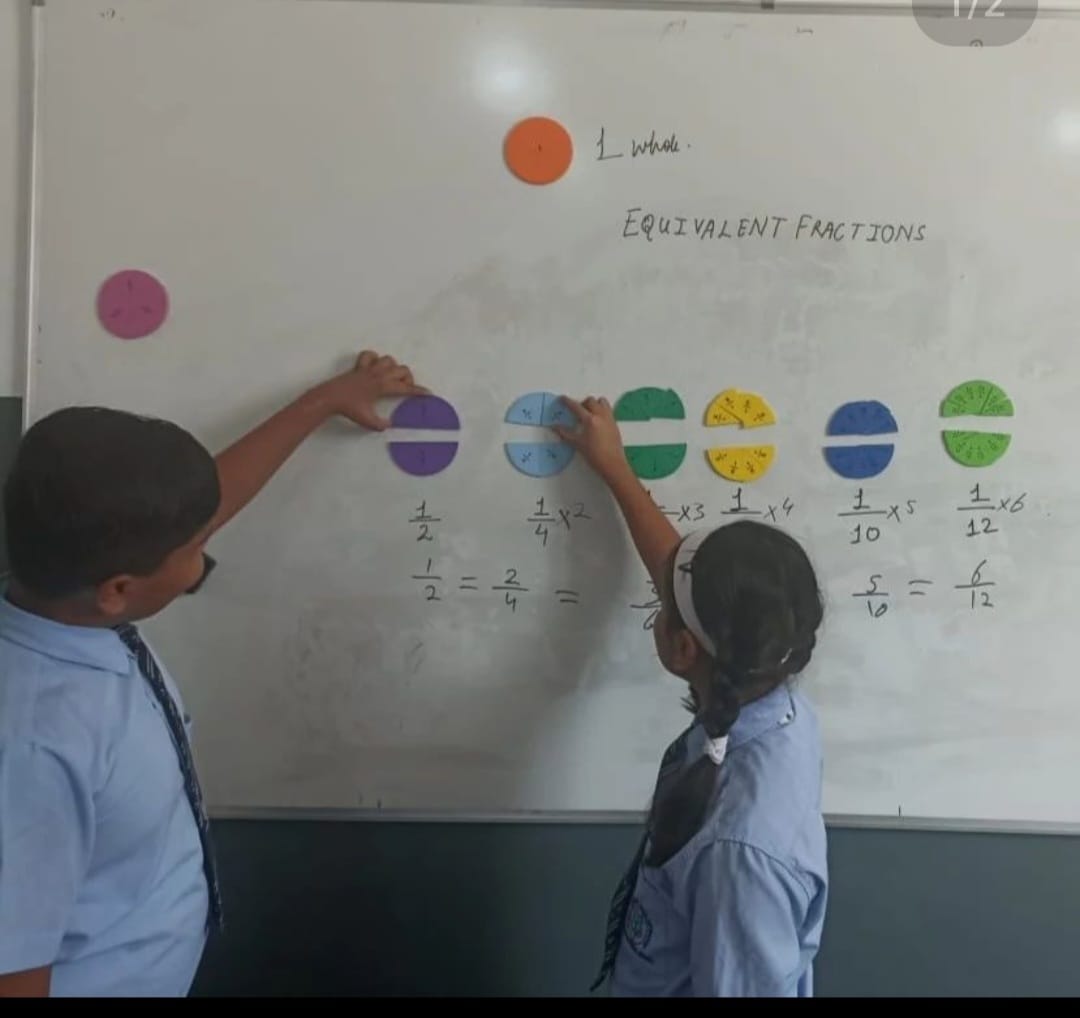 1/2
1 whole.
EQUIVALENT FRACTIONS
1/2 1/4 x2 x3 1 x4 1/10 x5 1/12 x6
1/2 = 2/4 = 5/10 = 6/12